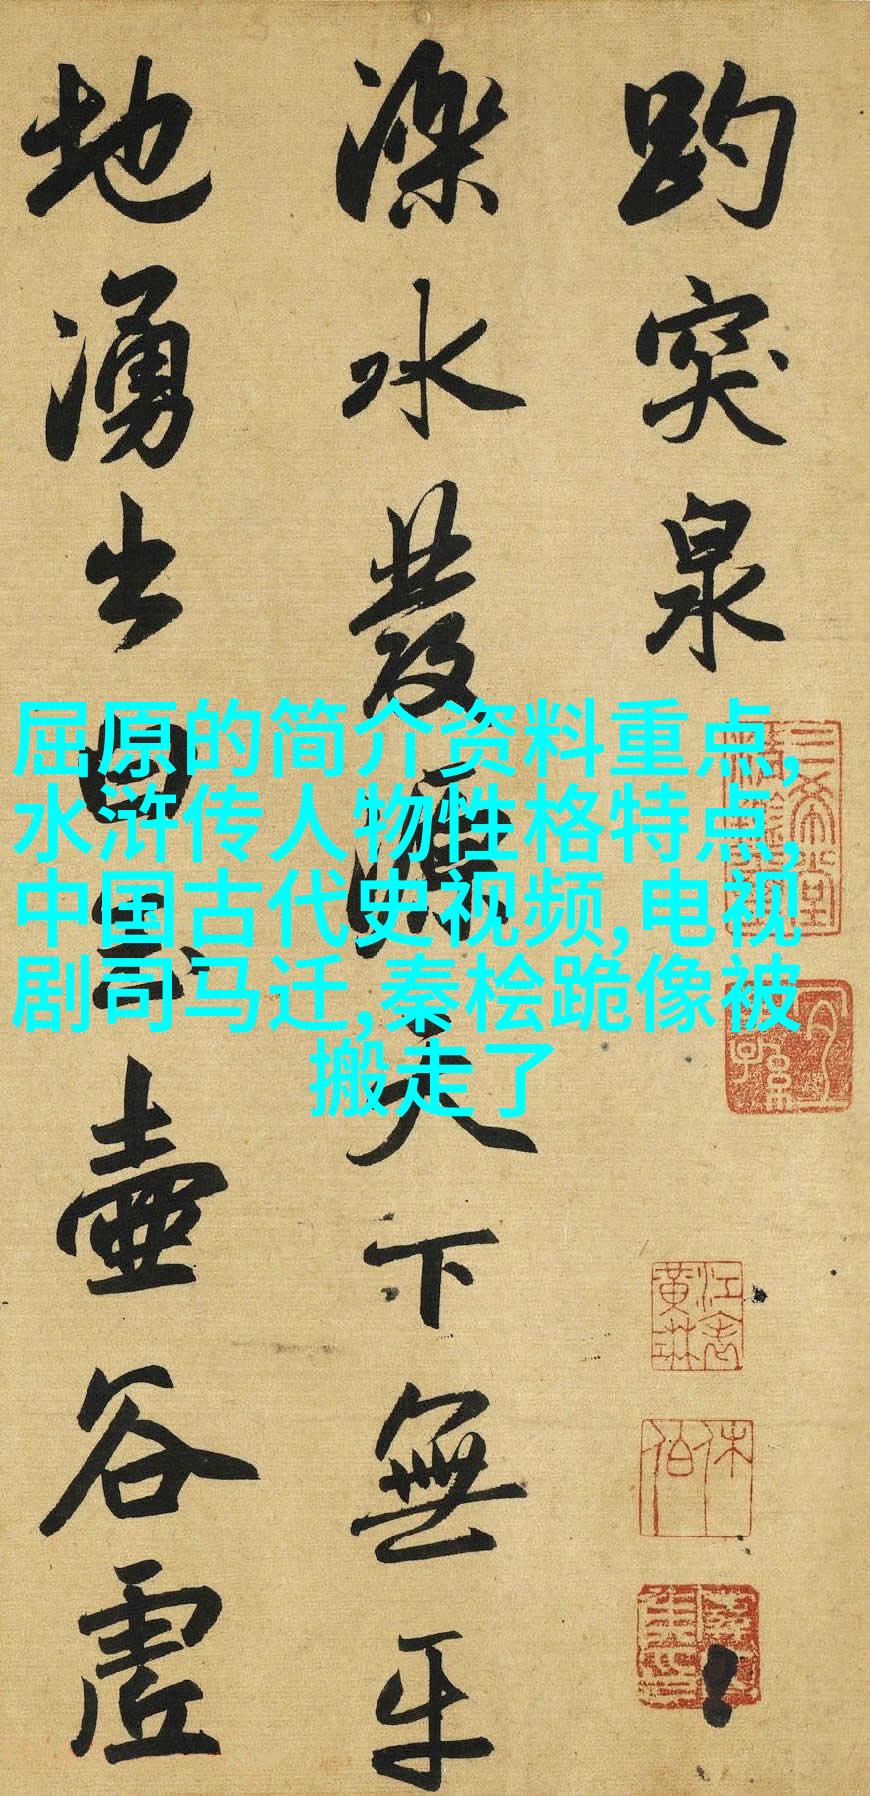 趵突泉
濼水發源天下無
平地湧出白玉壺
谷虛
屈原的简介资料重点,
水浒传人物性格特点,
中国古代史视频,电视
剧司马迁,秦桧跪像被
搬走了